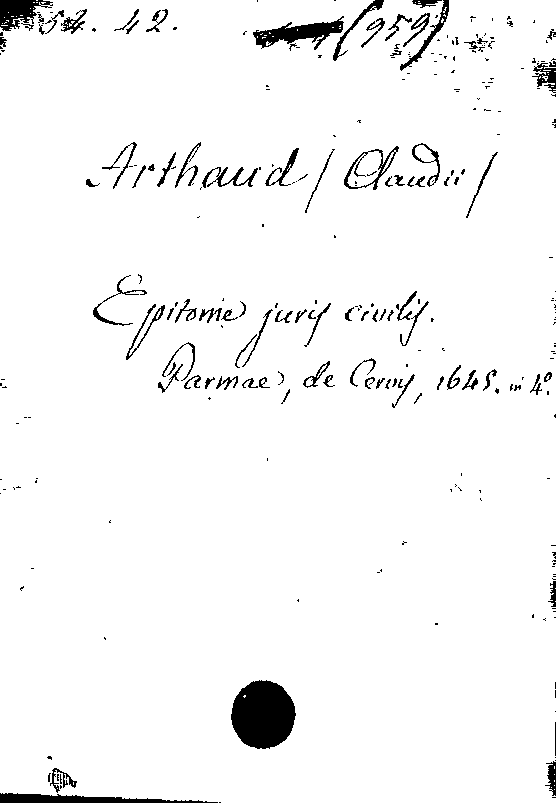 52. 42. (959)
Arthaud / Claudii /
Epitome juris civilis.
Parmae, de Cervis, 1645. in 4º.